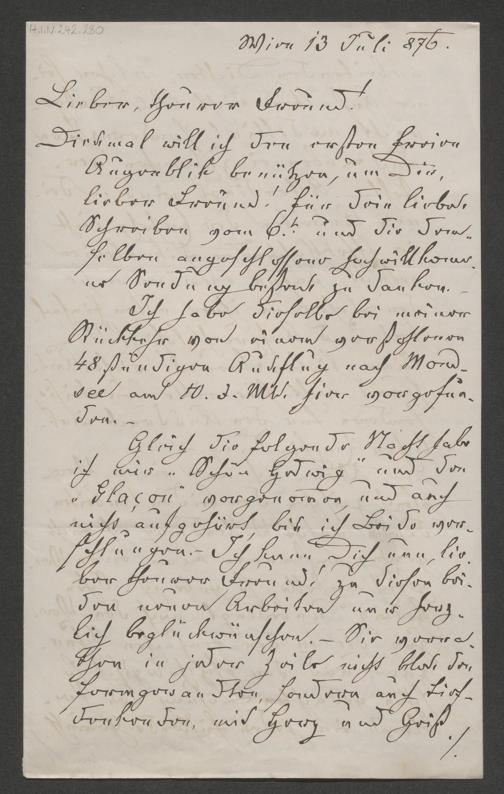 H.I.N. 242.280
Wien 13 Juli 876.
Lieber, theurer Freund!
Diesmal will ich den ersten freien
Augenblik benützen, um Dir,
lieber Freund! für Dein liebes
Schreiben vom 6.t und die dem-
selben angeschlossene hochwillkom̅e-
ne Sendung bestens zu danken. –
Ich habe dieselbe bei meiner
Rückkehr von einem verstohlenen
48stündigen Ausflug nach Mond-
see am 10. d. Mts. hier vorgefun-
den. –
Gleich die folgende Nacht habe
ich mir „Schön Hedwig" und den
„Glaçon" vorgenomen, und auch
nicht aufgehört, bis ich beide ver-
schlungen. – Ich kann Dich nun, lie-
ber theurer Freund! zu diesen bei-
den neuen Arbeiten nur herz-
lich beglückwünschen. – Sie verra-
then in jeder Zeile nicht blos den
formgewandten, sondern auch tief-
denkenden, mit Herz und Geist
./.